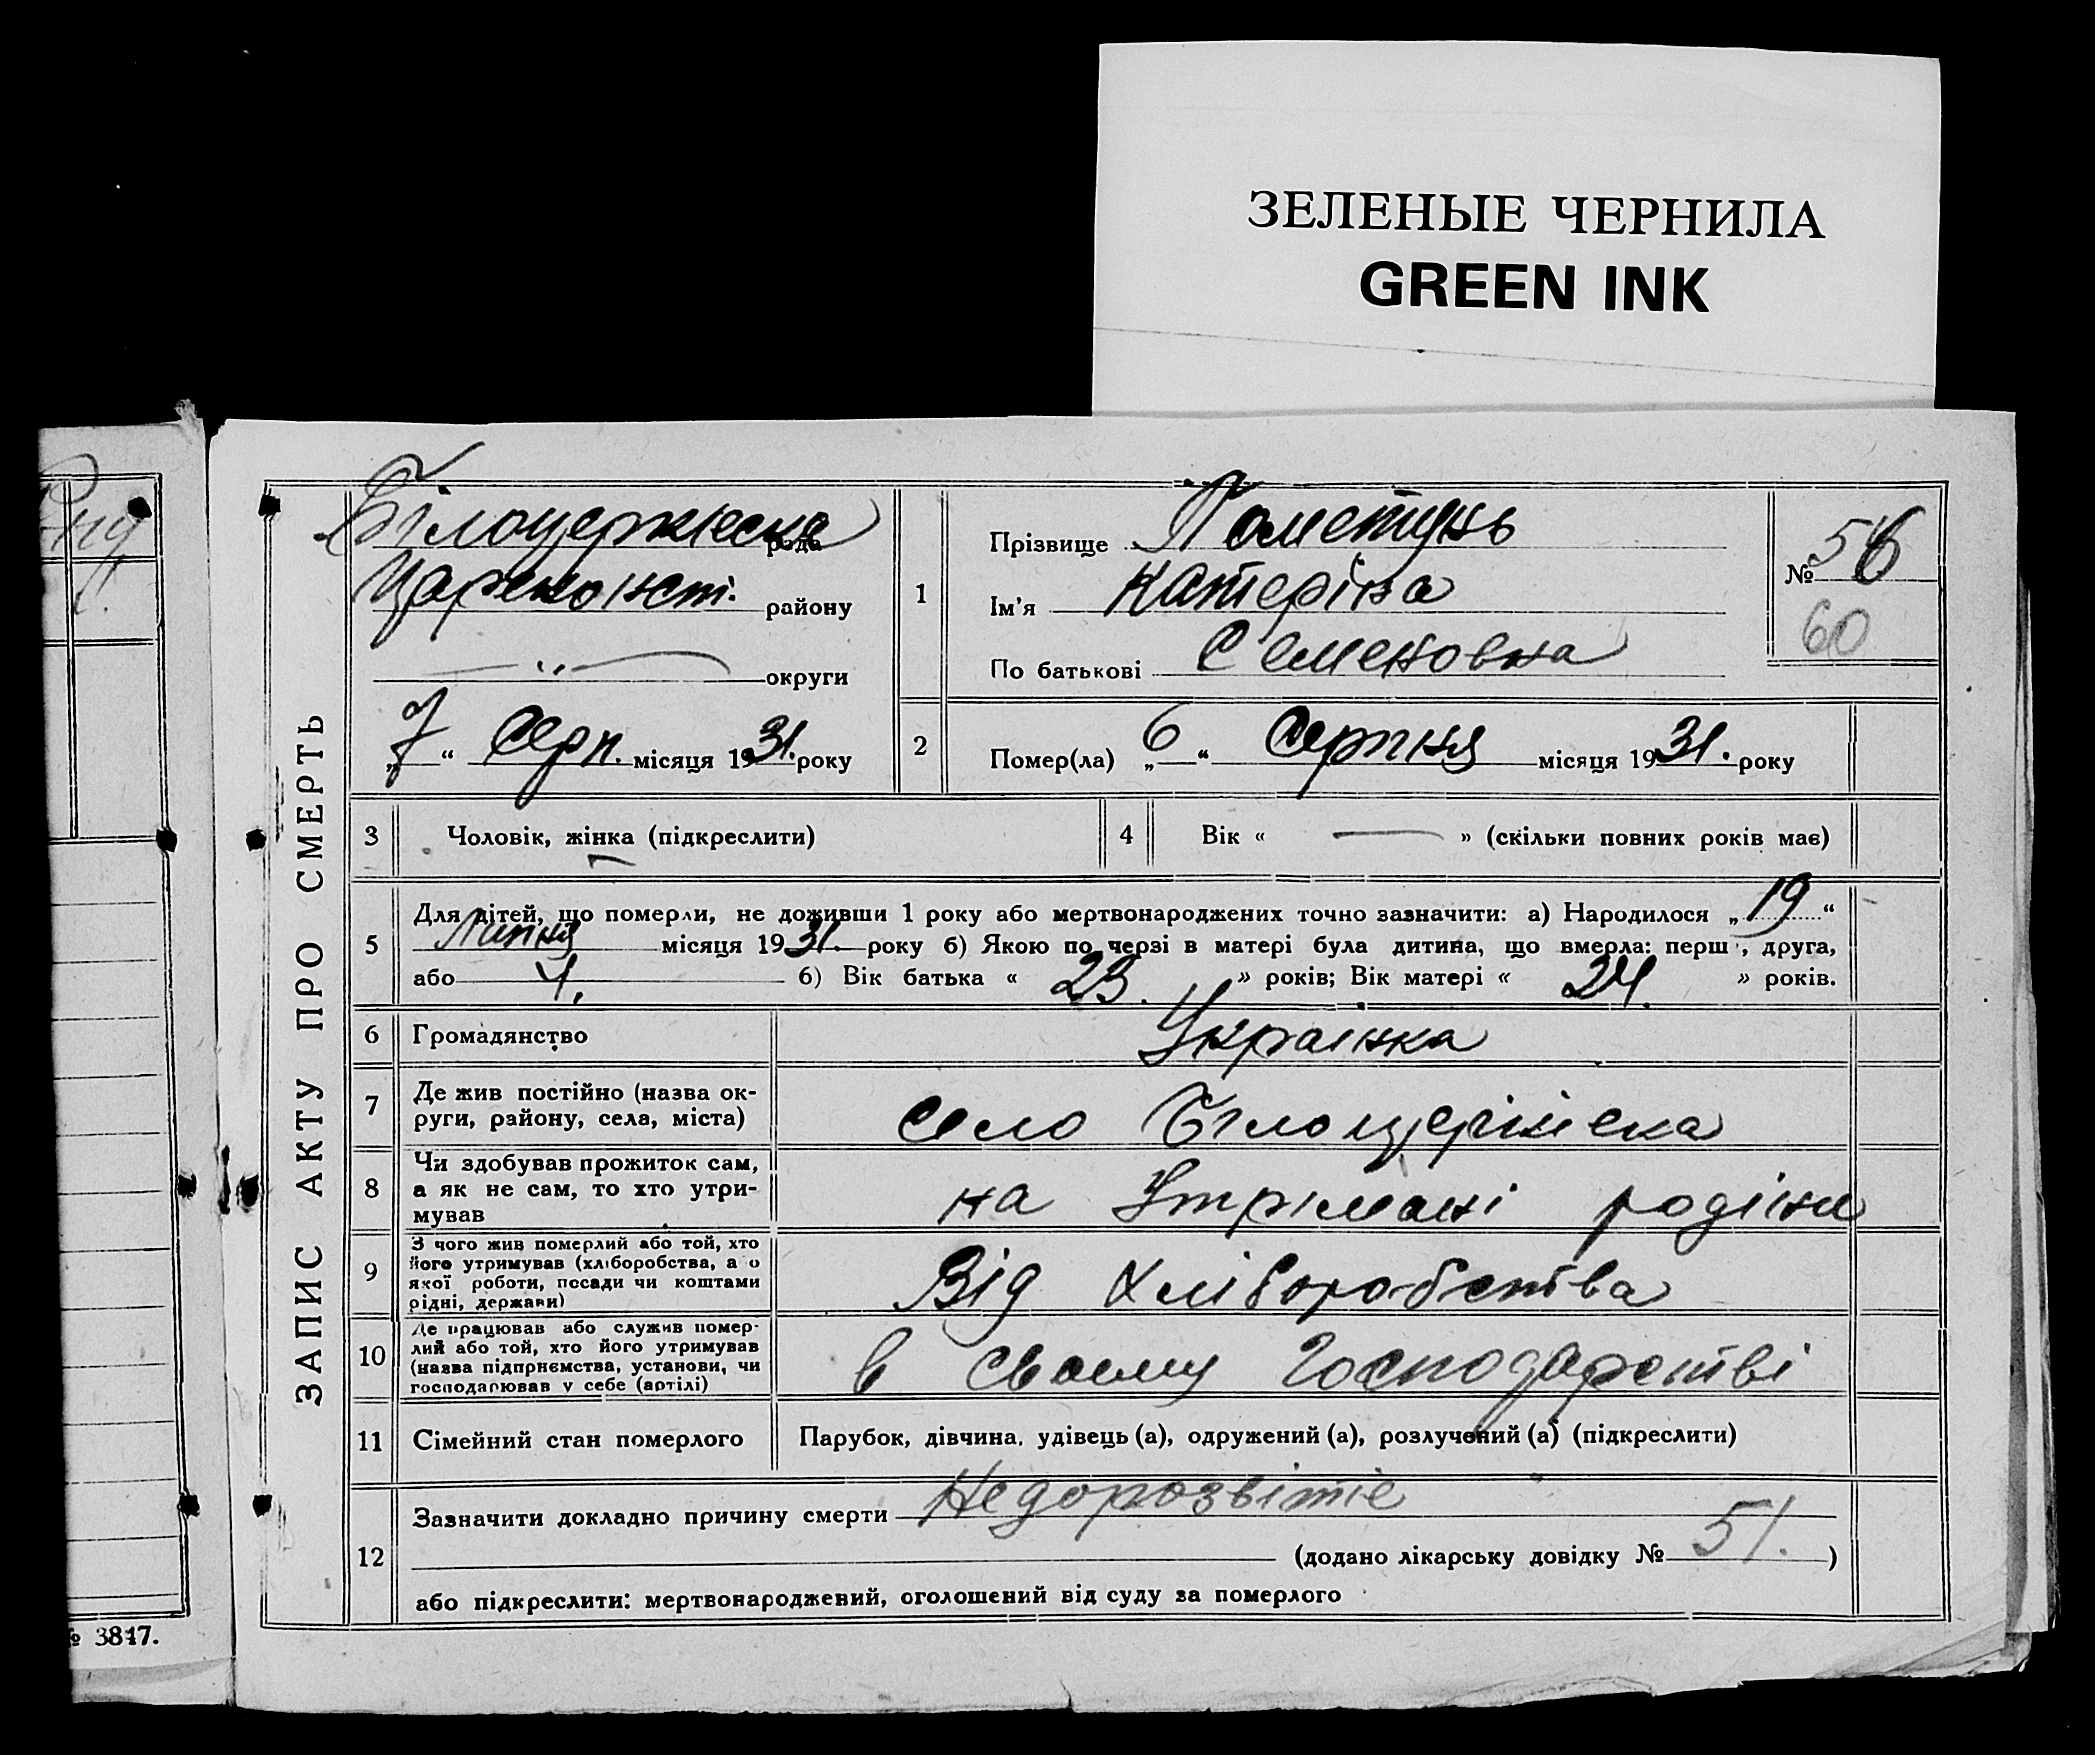 ЗЕЛЕНЫЕ ЧЕРНИЛА
GREEN INK
ЗАПИС АКТУ ПРО СМЕРТЬ
Білоцерківська рада
району
округи
„7“ Серп. місяця 1931. року
1
Прізвище Пометунь
Ім'я Катеріна
По батькові Семеновна
№ 56
60
2
Помер(ла) „6“ Серпня місяця 1931. року
3 Чоловік, жінка (підкреслити)
4 Вік « — » (скільки повних років має)
5 Для дітей, що померли, не доживши 1 року або мертвонароджених точно зазначити: а) Народилося „19“
Липня місяця 1931. року б) Якою по черзі в матері була дитина, що вмерла: перш , друга,
або 4. б) Вік батька « 23. » років; Вік матері « 24. » років.
6 Громадянство Українка
7 Де жив постійно (назва ок-
руги, району, села, міста) село Білоцерківска
8 Чи здобував прожиток сам,
а як не сам, то хто утри-
мував на Утрімані родіни
9 З чого жив померлий або той, хто
його утримував (хліборобства, а о
якої роботи, посади чи коштами
рідні, держави) Від Хліборобства
10 Де працював або служив помер-
лий або той, хто його утримував
(назва підприємства, установи, чи
господарював у себе (артілі) в своєму Господарстві
11 Сімейний стан померлого Парубок, дівчина, удівець (а), одружений (а), розлучений (а) (підкреслити)
12 Зазначити докладно причину смерти Недорозвітіе
(додано лікарську довідку № 51. )
або підкреслити: мертвонароджений, оголошений від суду за померлого
№ 3817.